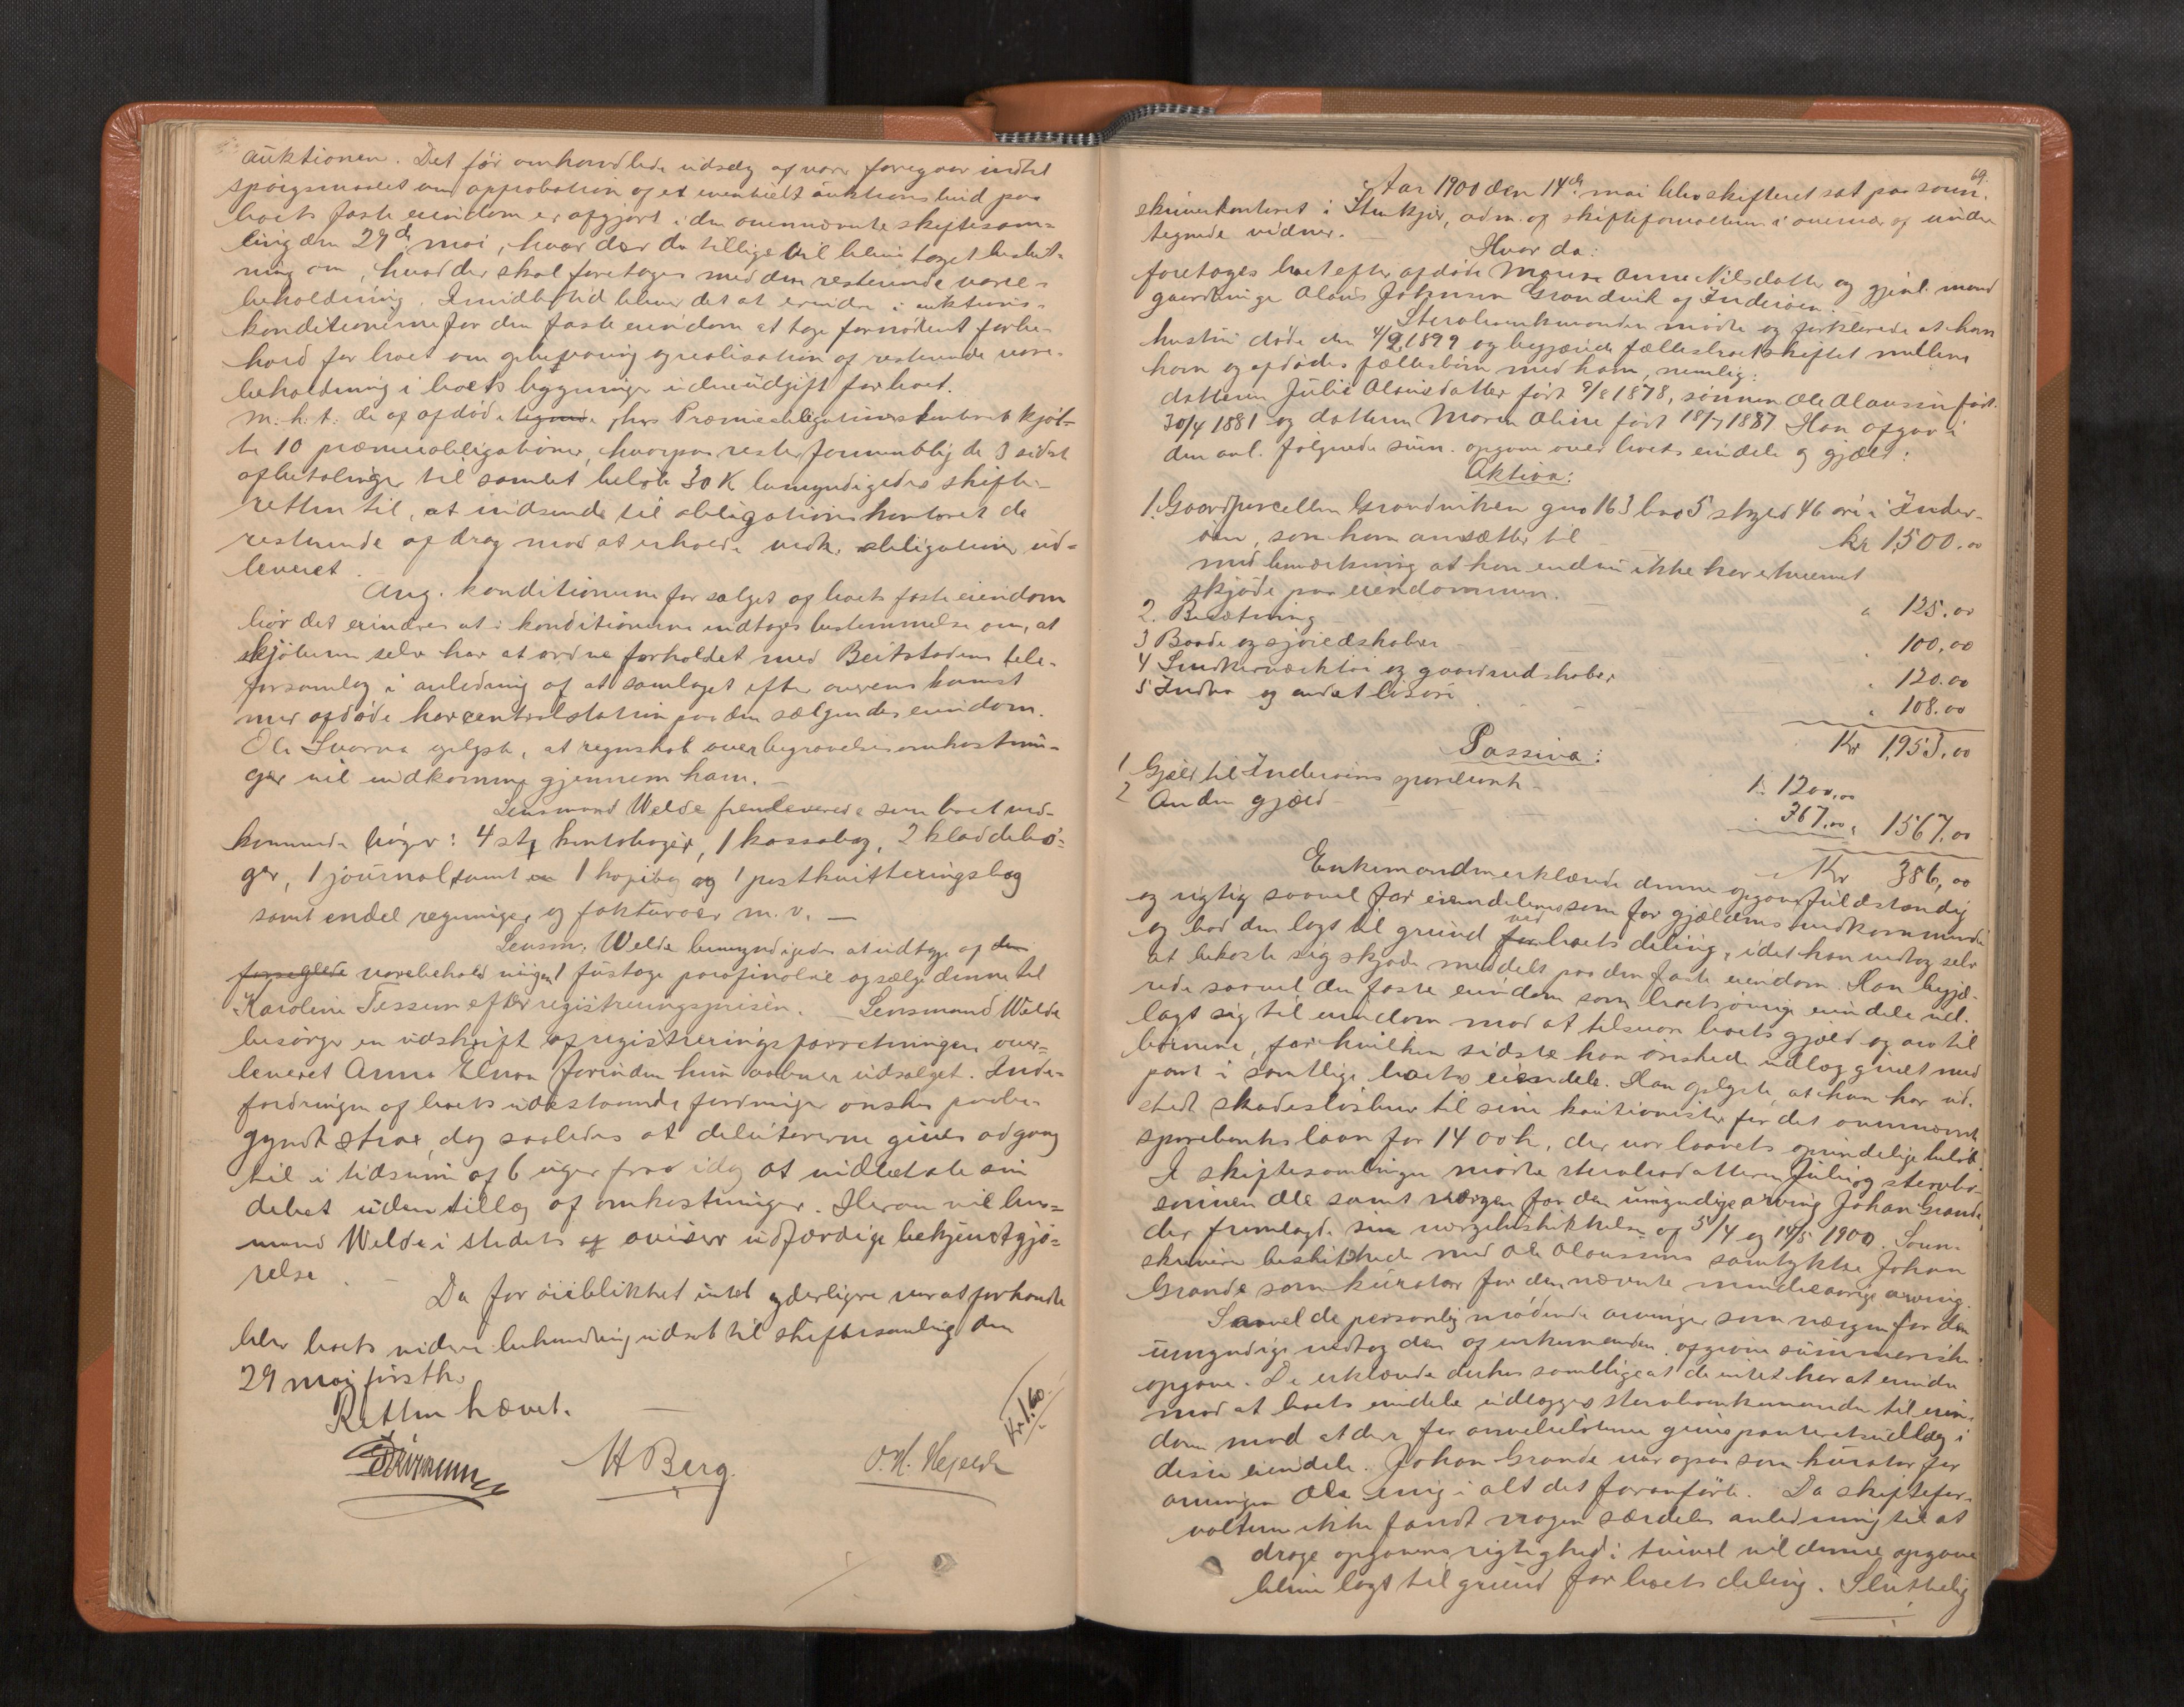 auktionen. Det før omhandlede udsalg af varer foregaar indtil
spørgsmaalet om approbation af et eventuelt auktionsbud paa
boets faste eiendom er afgjort i den ovennævnte skiftesam=
ling den 29de mai, hvor der da tillige vil blive taget beslut-
ning om, hvad der skal foretages med den resterende vare-
beholdning. Imidlertid bliver det at erindre i auktions-
konditionerne for den faste eiendom at tage fornødent forbe-
hold for boet om opbevaring og realisation af resterende vare-
beholdning i boets bygninger uden udgift for boet.
M. h. t. de af afdøde tegnede, hos Præmieobligationskontoret kjøb-
te 10 præmieobligationer, hvorpaa rester formentlig de 3 sidste
afbetalinger til samlet beløb 30 K bemyndigedes skifte-
retten til, at indsende til obligationskontoret de
resterende afdrag mod at erholde vedk. obligation ud=
leveret.
Ang. konditionerne for salget af boets faste eiendom
bør det erindres at i konditionerne indtages bestemmelse om, at
kjøberen selv har at ordne forholdet med Beitstadens tele-
fonsamlag i anledning af at samlaget efter overenskomst
med afdøde har centralstation paa den sælgendes eiendom.
Ole Svarva oplyste, at regnskab over begravelsesomkostnin-
ger vil indkomme gjennem ham. —
Lensmand Welde fremleverede som boet ved-
kommende bøger: 4 stk kontobøger, 1 kassabog, 2 kladdebø-
ger, 1 journal, samt en 1 kopibog og 1 postkvitteringsbog
samt endel regninger og fakturaer m. v. —
Lensm. Welde bemyndigedes at udtage af den
forseglede varebeholdningen 1 fustage parafinolie og sælge denne til
Karoline Tessem efter registreringsprisen. — Lensmand Welde
besørger en udskrift af registreringsforretningen over=
leveret Anna Elnan forinden hun aabner udsalget. Inde-
fordringen af boets udestaaende fordringer ønskes paabe-
gyndt strax, dog saaledes at debitorerne gives adgang
til i tidsrum af 6 uger fra idag at indbetale sin
debet uden tillæg af omkostninger. Herom vil lens=
mand Welde i stedets aviser udfærdige bekjendtgjø=
relse. —
Da for øieblikket intet yderligere var at forhandle
blev boets videre behandling udsat til skiftesamling den
29 mai førsth.
Retten hævet. —
H Berg.
Kr 1.60
69.
Aar 1900 den 14de mai blev skifteret sat paa soren-
skriverkontoret i Stenkjær, adm. af skifteforvalteren i overvær af under
tegnede vidner.
Hvor da:
foretoges boet efter afdøde Maren Anne Nilsdatter og gjenl. mand
gaardbruger Olaus Johnsen Grandvik af Inderøen.
Sterboenkemanden mødte og forklarede at hans
hustru døde den 4/2 1899 og begjærede fællesboet skiftet mellem
ham og afdødes fællesbørn med ham, nemlig:
datteren Julie Olausdatter født 9/8 1878, sønnen Ole Olaussen født
30/4 1881 og datteren Maren Oline født 18/7 1887 Han opgav i
den anl. følgende sum. opgave over boets eiendele og gjæld:
Aktiva:
1. Gaardparcellen Grandviken gno 163 bno 5 skyld 46 øre i Inder-
øen, som han ansætter til kr 1,500.00
med bemærkning at han endnu ikke har erhvervet
skjøde paa eiendommen.
2. Besætning — " 125.00
3 Baade og sjøredskaber — " 100.00
4 Snedkerværktøi og gaardsredskaber " 120.00
5 Indbo og andet løsøre " 108.00
Kr 1,953.00
Passiva:
1 Gjæld til Inderøens sparebank — k. 1200.00
2 Anden gjæld — 367.00 " 1567.00
Kr 386,00
Enkemanden erklærede denne opgave fuldstændig
og rigtig saavel for eiendelenes som for gjældens vedkommende
og bad den lagt til grund for ved boets deling, idet han vedtog selv
at bekoste sig skjøde meddelt paa den faste eiendom. Han begjæ-
rede saavel den faste eiendom som boets øvrige eiendele ud-
lagt sig til eiendom mod at tilsvare boets gjæld og arv til
børnene, for hvilken sidste han ønskede udlæg givet med
pant i samtlige boets eiendele. Han oplyste, at han har ud-
stedt skadesløsbrev til sine kautionister for det ovennævnte
sparebanklaan for 1400 k., der var laanets oprindelige beløb.
I skiftesamlingen mødte sterbodatteren Julie og sterbo-
sønnen Ole samt værgen for den umyndige arving Johan Grande
der fremlagde sin værgebeskikkelse af 5/4 og 14/5 1900. Soren-
skriveren beskikkede med Ole Olaussens samtykke Johan
Grande som kurator for den nævnte mindreaarige arving.
Saavel de personlig mødende arvinger som værgen for den
umyndige vedtog den af enkemanden opgivne summariske
opgave. De erklærede derhos samtlige at de intet har at erindre
mod at boets eiendele udlægges sterboenkemanden til eien-
dom mod at der for arvebeløbene gives panteretsudlæg i
disse eiendele. Johan Grande var ogsaa som kurator for
arvingen Ole enig i alt det foranførte. Da skiftefor-
valteren ikke fandt nogen særdeles anledning til at
drage opgavens rigtighed i tvivl vil denne opgave
blive lagt til grund for boets deling. Sluttelig